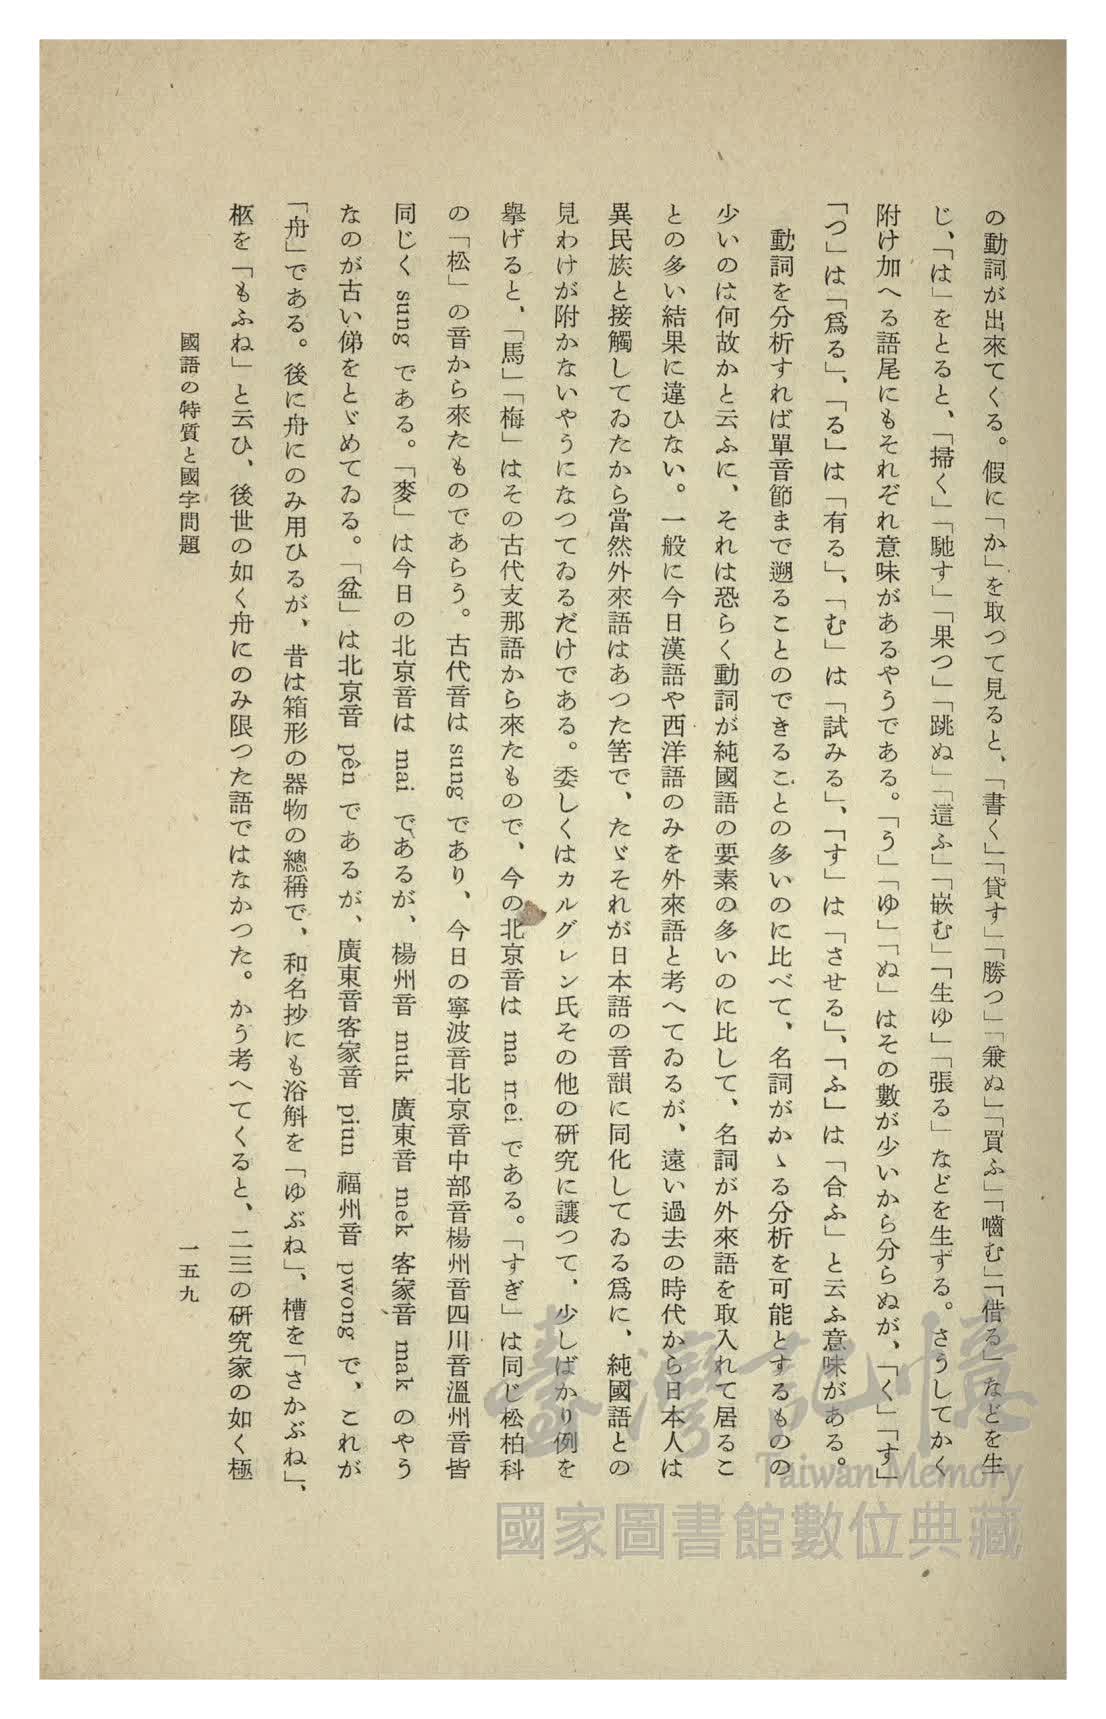 の動詞が出來てくる。假に「か」を取つて見ると、「書く」「貸す」「勝つ」「兼ぬ」「買ふ」「嚙む」「借る」などを生
じ、「は」をとると、「掃く」「馳す」「果つ」「跳ぬ」「這ふ」「嵌む」「生ゆ」「張る」などを生ずる。さうしてかく
附け加へる語尾にもそれぞれ意味があるやうである。「う」「ゆ」「ぬ」はその數が少いから分らぬが、「く」「す」
「つ」は「爲る」、「る」は「有る」、「む」は「試みる」、「す」は「させる」、「ふ」は「合ふ」と云ふ意味がある。
動詞を分析すれば單音節まで遡ることのできることの多いのに比べて、名詞がかゝる分析を可能とするものの
少いのは何故かと云ふに、それは恐らく動詞が純國語の要素の多いのに比して、名詞が外來語を取入れて居るこ
との多い結果に違ひない。一般に今日漢語や西洋語のみを外來語と考へてゐるが、遠い過去の時代から日本人は
異民族と接觸してゐたから當然外來語はあつた筈で、たゞそれが日本語の音韻に同化してゐる爲に、純國語との
見わけが附かないやうになつてゐるだけである。委しくはカルグレン氏その他の硏究に讓つて、少しばかり例を
擧げると、「馬」「梅」はその古代支那語から來たもので、今の北京音は ma mei である。「すぎ」は同じ松柏科
の「松」の音から來たものであらう。古代音は sung であり、今日の寧波音北京音中部音楊州音四川音溫州音皆
同じく sung である。「麥」は今日の北京音は mai であるが、楊州音 muk 廣東音 mek 客家音 mak のやう
なのが古い俤をとゞめてゐる。「盆」は北京音 pên であるが、廣東音客家音 piun 福州音 pwong で、これが
「舟」である。後に舟にのみ用ひるが、昔は箱形の器物の總稱で、和名抄にも浴斛を「ゆぶね」、槽を「さかぶね」、
柩を「もふね」と云ひ、後世の如く舟にのみ限つた語ではなかつた。かう考へてくると、二三の硏究家の如く極
國語の特質と國字問題
一五九
臺灣記憶
Taiwan Memory
國家圖書館數位典藏